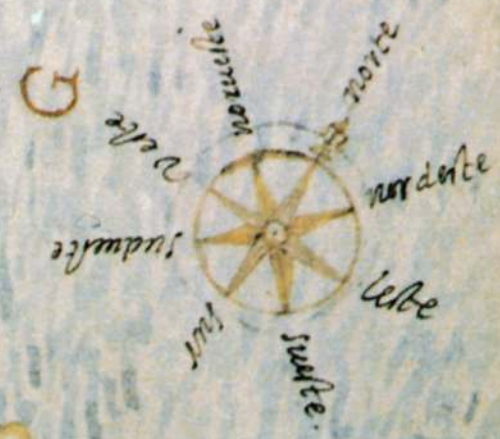 G
norte
nordeste
leste
sueste.
sur
sudueste
veste
norueste